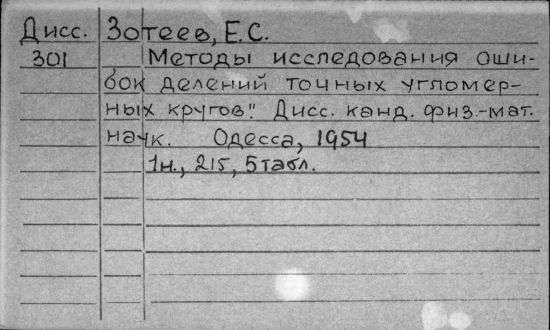 Дисс. Зотеев, Е.С.
301 Методы исследования оши-
бок делений точных угломер-
ных кругов." Дисс. канд. физ.-мат.
наук. Одесса, 1954
1н., 215, 5 табл.